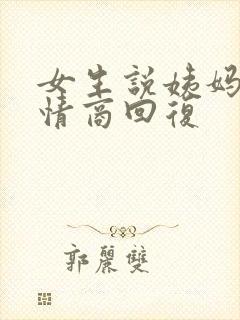 女生說姨妈
情商回復
郭麗雙